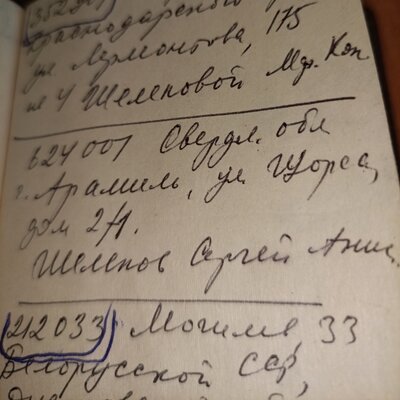 35291
Краснодарского
ул Лермонтова, 175
кв 4 Шелеповой Мар. Кон
624001 Свердл. обл
г. Арамиль, ул Щорса,
дом 2/1.
Шелепов Сергей Анис.
212033 Могилев, 33
Белорусской ССР,